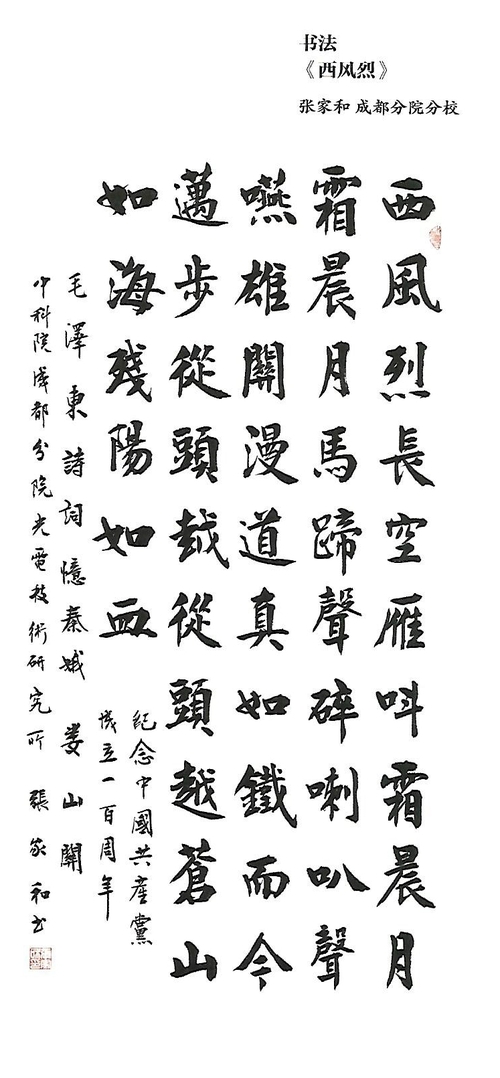 书法
《西风烈》
张家和 成都分院分校
西風烈長空雁呌霜晨月
霜晨月馬蹄聲碎喇叭聲
嚥雄關漫道真如鐵而今
邁步從頭越從頭越蒼山
如海殘陽如血
紀念中國共産黨
成立一百周年
毛澤東詩詞憶秦娥 娄山關
中科院成都分院光電技術研究所 張家和书